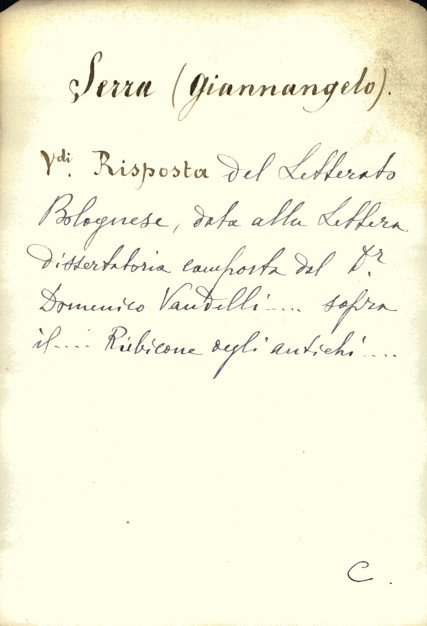 Serra (Giannangelo).
Vdi. Risposta del Letterato
Bolognese, data alla Lettera
dissertatoria composta dal Dr.
Domenico Vandelli.... sopra
il.... Rubicone degli antichi....
C.